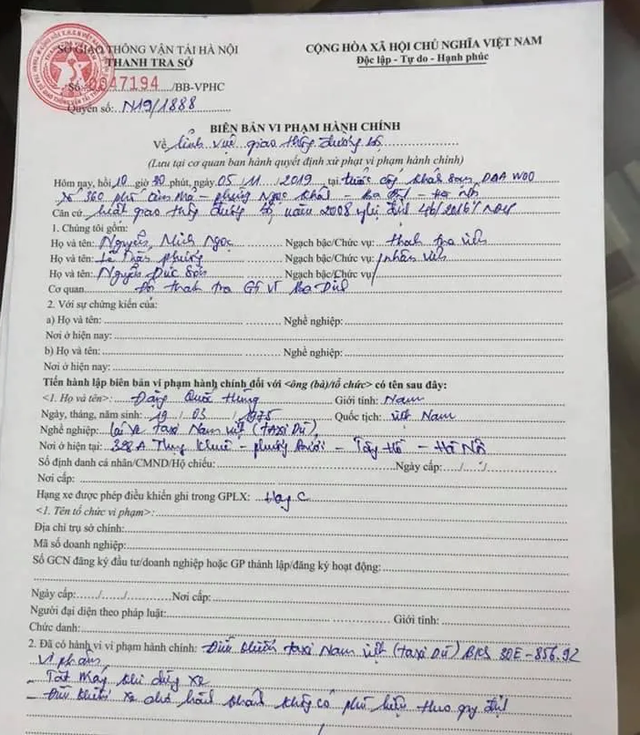 SỞ GIAO THÔNG VẬN TẢI HÀ NỘI
THANH TRA SỞ
CỘNG HÒA XÃ HỘI CHỦ NGHĨA VIỆT NAM
Độc lập - Tự do - Hạnh phúc
Số: 0047194 /BB-VPHC
Quyển số: N19/1888
BIÊN BẢN VI PHẠM HÀNH CHÍNH
Về lĩnh vực giao thông đường bộ
(Lưu tại cơ quan ban hành quyết định xử phạt vi phạm hành chính)
Hôm nay, hồi 10 giờ 30 phút, ngày 05/11/2019 tại trước cổng khách sạn DAA WOO
số 360 phố Kim Mã - phường Ngọc Khánh - Ba Đình - Hà Nội
Căn cứ luật giao thông đường bộ năm 2008 nghị định 46/2016/NĐCP
1. Chúng tôi gồm:
Họ và tên: Nguyễn Minh Ngọc Ngạch bậc/Chức vụ: thanh tra viên
Họ và tên: Lê Trần Phương Ngạch bậc/Chức vụ: nhân viên
Họ và tên: Nguyễn Đức Sơn Ngạch bậc/Chức vụ:
Cơ quan Đội thanh tra GTVT Ba Đình
2. Với sự chứng kiến của:
a) Họ và tên: Nghề nghiệp:
Nơi ở hiện nay:
b) Họ và tên: Nghề nghiệp:
Nơi ở hiện nay:
Tiến hành lập biên bản vi phạm hành chính đối với <ông (bà)/tổ chức> có tên sau đây:
<1. Họ và tên>: Đặng Quốc Hùng Giới tính: Nam
Ngày, tháng, năm sinh: 19/03/1975 Quốc tịch: Việt Nam
Nghề nghiệp: lái xe taxi Nam Việt (TAXI DÙ)
Nơi ở hiện tại: 328A Thụy Khuê - phường Bưởi - Tây Hồ - Hà Nội
Số định danh cá nhân/CMND/Hộ chiếu: Ngày cấp: / /
Nơi cấp:
Hạng xe được phép điều khiển ghi trong GPLX: Hạng C
<1. Tên tổ chức vi phạm>:
Địa chỉ trụ sở chính:
Mã số doanh nghiệp:
Số GCN đăng ký đầu tư/doanh nghiệp hoặc GP thành lập/đăng ký hoạt động:
Ngày cấp: / / Nơi cấp:
Người đại diện theo pháp luật: Giới tính:
Chức danh:
2. Đã có hành vi vi phạm hành chính: Điều khiển taxi Nam Việt (TAXI DÙ) BKS 30E-856.92
Vi phạm
- Tắt máy khi dừng xe
- Điều khiển xe chở hành khách không có phù hiệu theo quy định